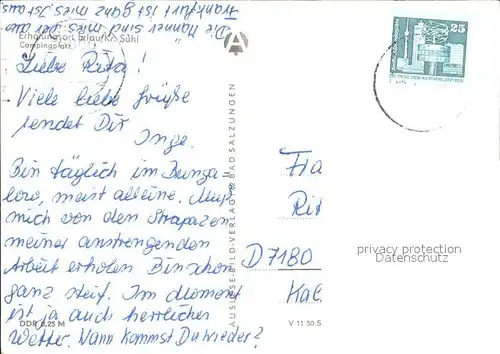 "Die Männer" sind mies, der aus
Frankfurt ist ganz mies
Erholungsort Erlau/Kr. Suhl
Campingplatz
Liebe Rita!
Viele liebe Grüße
sendet Dir
Inge.
Bin täglich im Bunga-
low, meist alleine. Muß
mich von den Strapazen
meiner anstrengenden
Arbeit erholen Bin schon
ganz steif. Im Moment
ist ja auch herrliches
Wetter. Wann kommst Du wieder?
DDR 0,25 M
AUSLESE-BILD-VERLAG BAD SALZUNGEN
V 11 50 S
25
Fra
Rit
D7180
privacy protection
Datenschutz